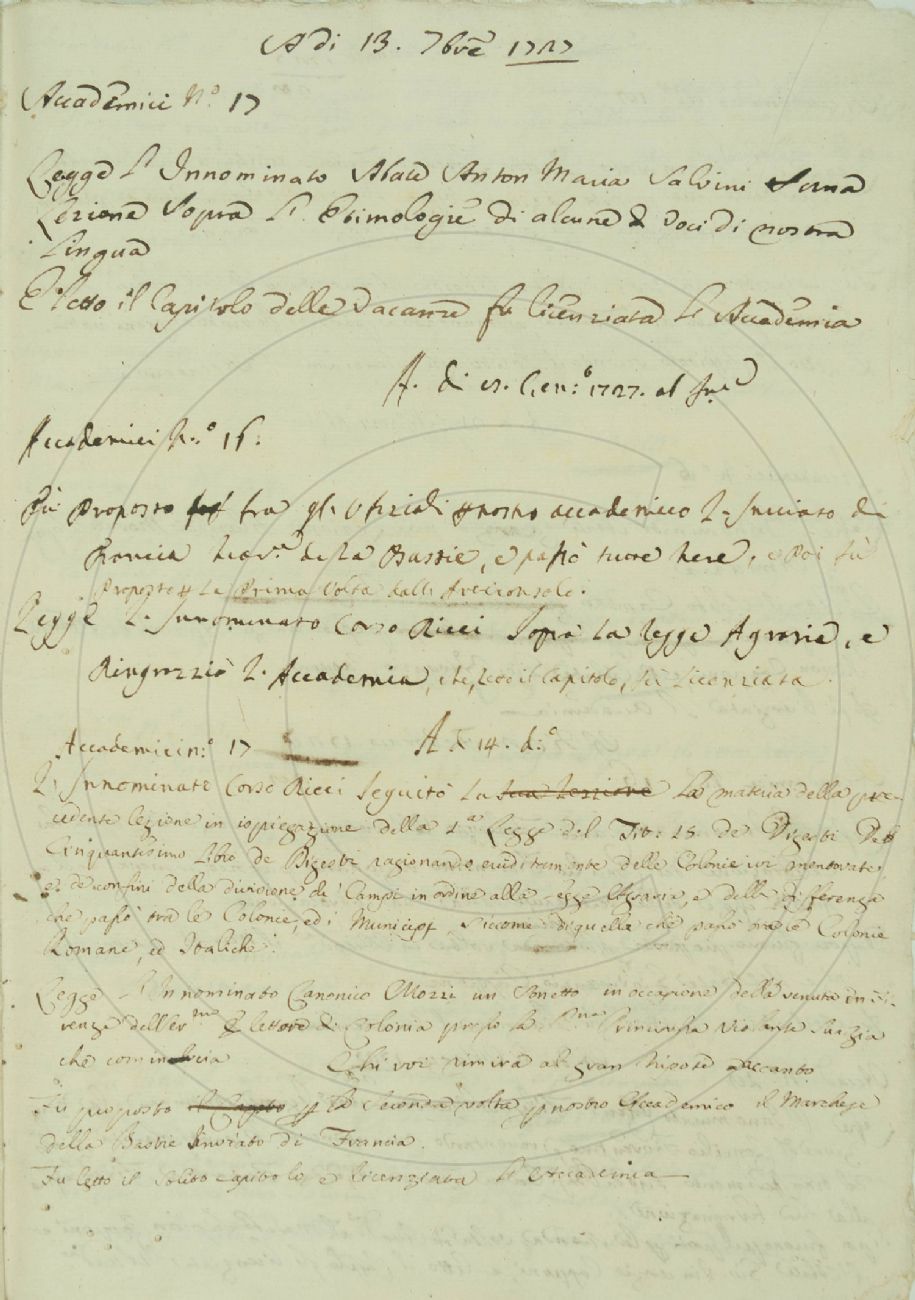 A di 13. 7bre 1727
Accademici N.o 17
Legge L' Innominato Abate Anton Maria Salvini una
Lezione Sopra L' Etimologie di alcune voci di nostra
Lingua
E letto il Capitolo delle vacanze fu licenziata L' Accademia
A. di Gen:o 1727. al
Accademici N.o 16.
Fù Proposto fra gl' Ufiziali nostro accademico L' Inviato di
Francia della Bastie, e passò nere, e Poi fù
Proposto La Prima Volta dall' Arciconsolo.
Legge L' Innominato Corso Ricci Sopra La legge Agraria, e
Ringrazziò L' Accademia, che, letto il Capitolo, fù Licenziata.
Accademici n:o 17 A di 14. d:o
L' Innominato Corso Ricci seguitò La sua Lezzione La materia della pre-
cedente lezione in ispiegazione della Legge del Tit: 15 de Digesti Del
Cinquantesimo Libro de Digesti ragionando eruditamente delle Colonie ivi mentovate,
e de confini della divisione de' Campi in ordine alla Legge Agraria, e della differenza
che passò tra le Colonie, ed i Municipj, siccome di quella che passò tra le Colonie
Romane, ed Italiche.
Legge L' Innominato Canonico Mozzi un Sonetto in occasione della venuta in Fi-
renze dell' Elettore di Colonia presso la Principessa Violante
che comincia Chi voi rimira al gran Nipote accanto
Fu proposto il Capito La seconda volta nostro Accademico il Marchese
della Bastie Inviato di Francia.
Fu letto il solito capitolo, e licenziata L' Accademia